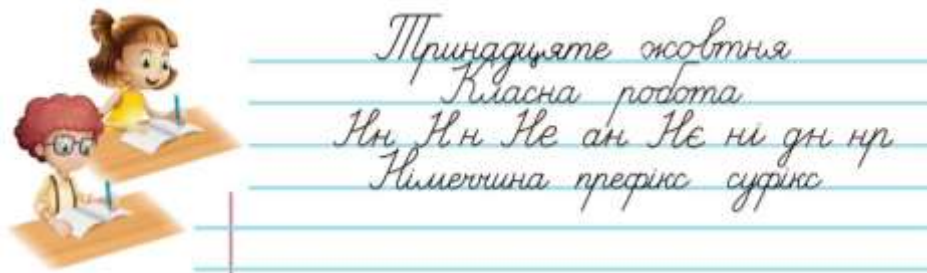 Тринадцяте жовтня
Класна робота
Нн Нн Не ан Нє ні дн нр
Німеччина префікс суфікс